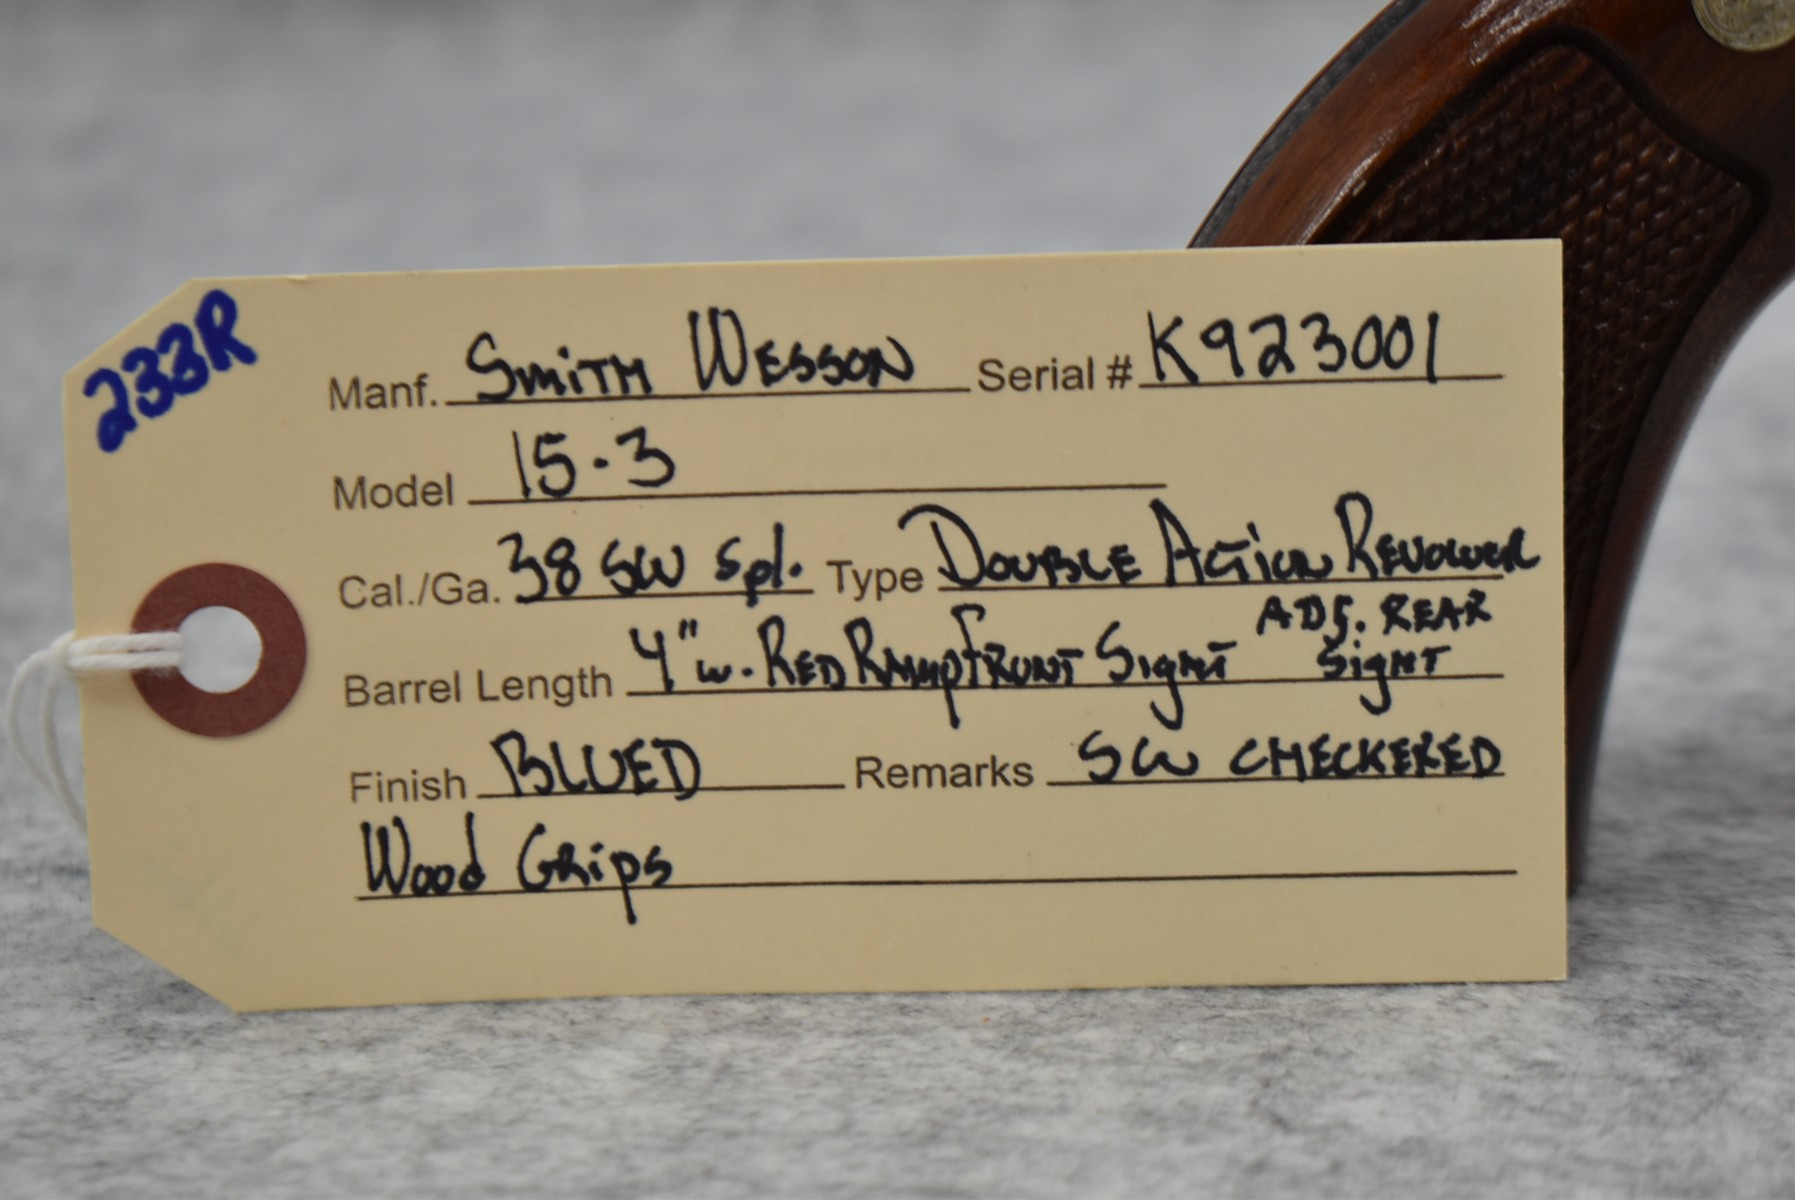 233R
Manf. Smith Wesson Serial # K923001
Model 15.3
Cal./Ga. 38 SW Spl. Type Double Action Revolver
Barrel Length 4" w. Red Ramp Front Sight Adj. Rear Sight
Finish Blued Remarks SW Checkered
Wood Grips